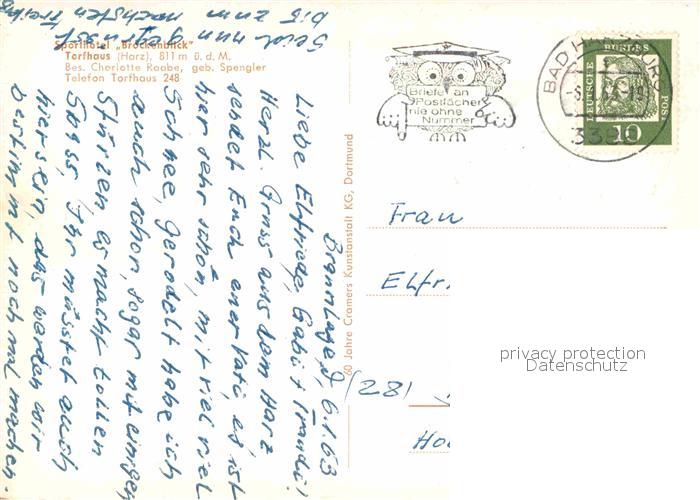 Sporthotel „Brockenblick"
Torfhaus (Harz), 811 m ü. d. M.
Bes. Charlotte Raabe, geb. Spengler
Telefon Torfhaus 248
Braunlage, d. 6.1.63
Liebe Elfriede, Gabi + Traudi!
Herzl. Gruss aus dem Harz
sendet Euch euer Vati, es ist
hier sehr schön, mit viel viel
Schnee, gerodelt habe ich
auch schon, sogar mit einigen
Stürzen es macht tollen
Spass, Ihr müsstet auch
hier sein, das werden wir
bestimmt noch mal machen.
Seid nun gegrüsst
bis zum nächsten Freitag
60 Jahre Cramers Kunstanstalt KG, Dortmund
Briefe an
Postfächer
nie ohne
Nummer
BAD HARZBURG
3388
DEUTSCHE BUNDESPOST
10
Frau
Elfr
(28)
Ho
privacy protection
Datenschutz